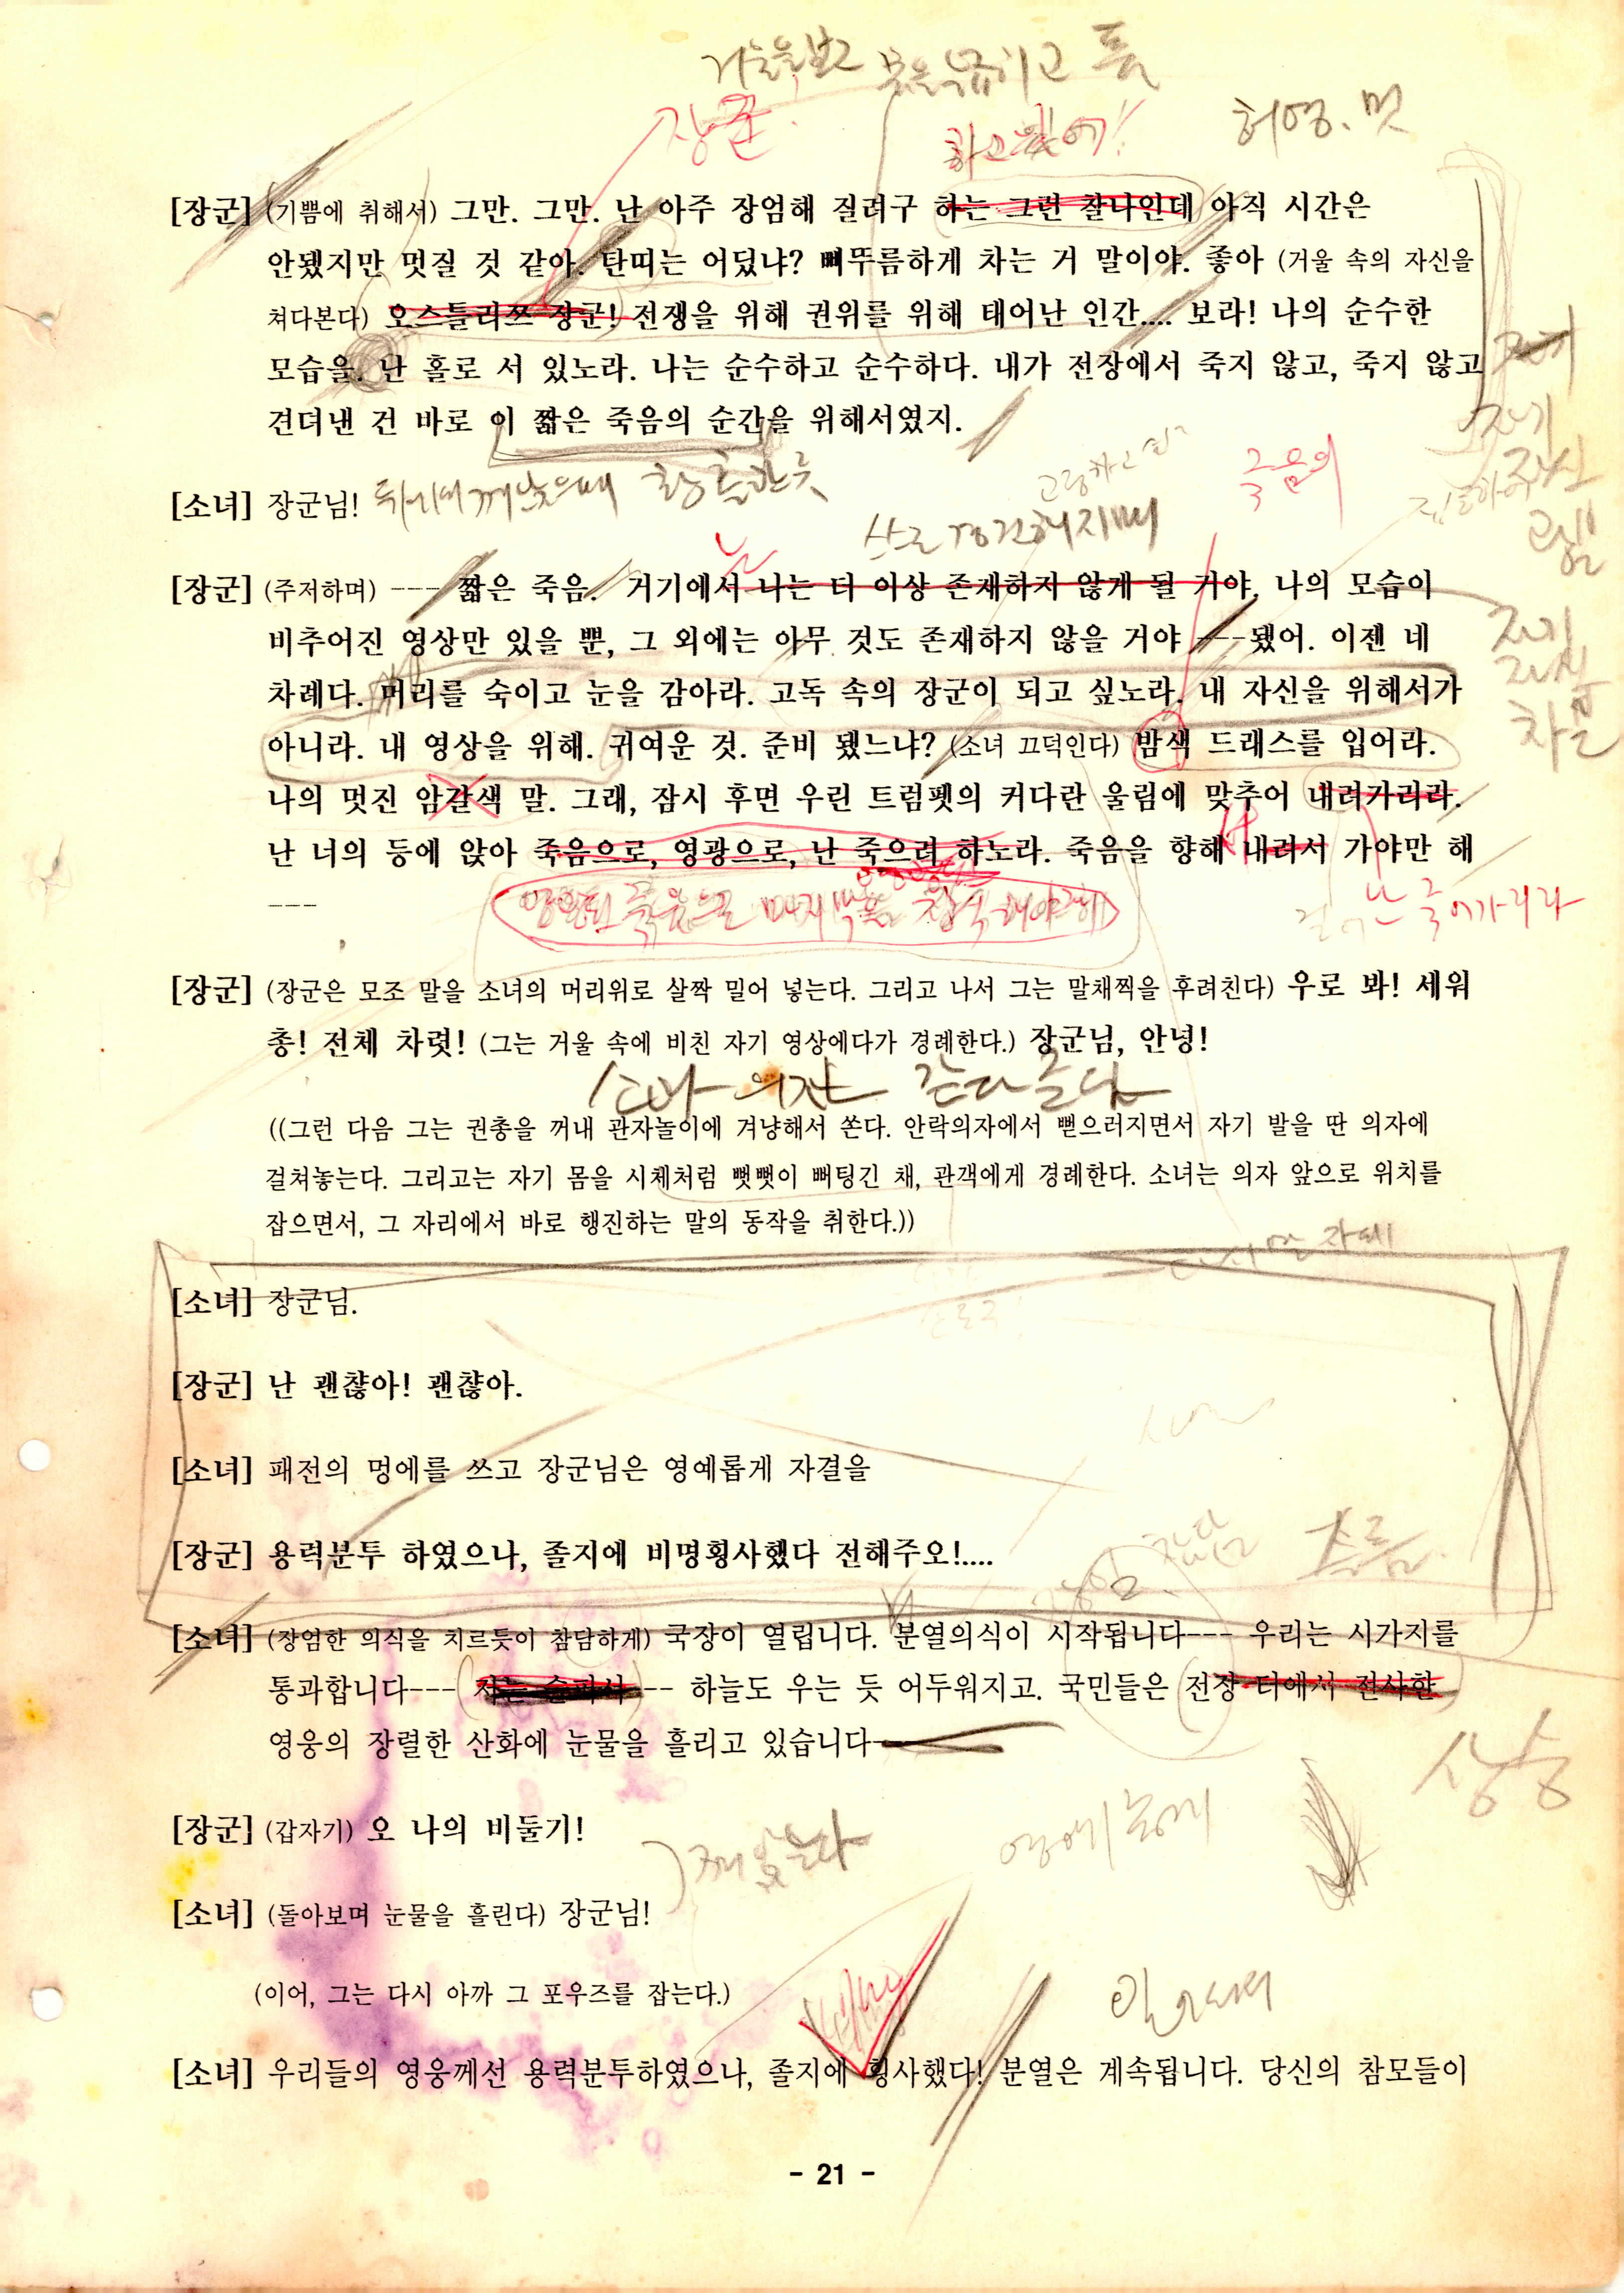 거울을 보고 폼
장군.
하고 밖에!
허영. 멋
[장군] (기쁨에 취해서) 그만. 그만. 난 아주 장엄해 질려구 하는 그런 찰나인데 아직 시간은
안됐지만 멋질 것 같아. 탄띠는 어딨냐? 삐뚜름하게 차는 거 말이야. 좋아 (거울 속의 자신을
쳐다본다) 오스틀리쯔 장군! 전쟁을 위해 권위를 위해 태어난 인간.... 보라! 나의 순수한
모습을. 난 홀로 서 있노라. 나는 순수하고 순수하다. 내가 전장에서 죽지 않고, 죽지 않고
견뎌낸 건 바로 이 짧은 죽음의 순간을 위해서였지.
자기
[소녀] 장군님!
깨달았을때 황홀한 듯
죽음의
[장군] (주저하며) --- 짧은 죽음. 거기에서 나는 더 이상 존재하지 않게 될 거야. 나의 모습이
는
비추어진 영상만 있을 뿐, 그 외에는 아무 것도 존재하지 않을 거야 ---됐어. 이젠 네
차례다. 머리를 숙이고 눈을 감아라. 고독 속의 장군이 되고 싶노라. 내 자신을 위해서가
아니라. 내 영상을 위해. 귀여운 것. 준비 됐느냐? (소녀 끄덕인다) 밤색 드레스를 입어라.
나의 멋진 암갈색 말. 그래, 잠시 후면 우린 트럼펫의 커다란 울림에 맞추어 내려가리라.
난 너의 등에 앉아 죽음으로, 영광으로, 난 죽으려 하노라. 죽음을 향해 내려서 가야만 해
---
죽음으로 마지막을 장식해야해
난 죽어가리라
[장군] (장군은 모조 말을 소녀의 머리위로 살짝 밀어 넣는다. 그리고 나서 그는 말채찍을 후려친다) 우로 봐! 세워
총! 전체 차렷! (그는 거울 속에 비친 자기 영상에다가 경례한다.) 장군님, 안녕!
의자 갖다준다
((그런 다음 그는 권총을 꺼내 관자놀이에 겨냥해서 쏜다. 안락의자에서 뻗으러지면서 자기 발을 딴 의자에
걸쳐놓는다. 그리고는 자기 몸을 시체처럼 뻣뻣이 뻐팅긴 채, 관객에게 경례한다. 소녀는 의자 앞으로 위치를
잡으면서, 그 자리에서 바로 행진하는 말의 동작을 취한다.))
[소녀] 장군님.
[장군] 난 괜찮아! 괜찮아.
[소녀] 패전의 멍에를 쓰고 장군님은 영예롭게 자결을
[장군] 용력분투 하였으나, 졸지에 비명횡사했다 전해주오!....
참담
[소녀] (장엄한 의식을 치르듯이 참담하게) 국장이 열립니다. 분열의식이 시작됩니다--- 우리는 시가지를
통과합니다--- 저는 슬퍼서 -- 하늘도 우는 듯 어두워지고. 국민들은 전장 터에서 전사한
영웅의 장렬한 산화에 눈물을 흘리고 있습니다
상승
[장군] (갑자기) 오 나의 비둘기!
[소녀] (돌아보며 눈물을 흘린다) 장군님!
(이어, 그는 다시 아까 그 포우즈를 잡는다.)
[소녀] 우리들의 영웅께선 용력분투하였으나, 졸지에 횡사했다! 분열은 계속됩니다. 당신의 참모들이
- 21 -